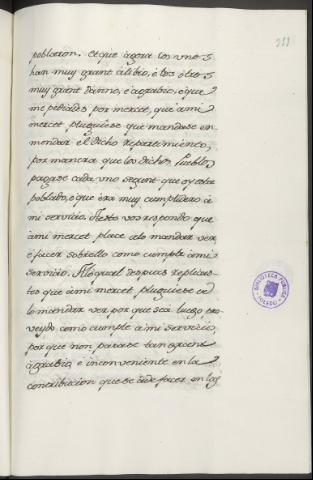 211
poblaron. et que agora los unos
han muy grant alibio, é los otros
muy grant danno, é agrabio, é que
me pediades por mercet, que à mi
mercet pluguiese que mandase en-
mendar el dicho repartimiento,
por manera que los dichos Pueblos
pagase cada uno segunt que oy esta
poblado, é que era muy cumplidero à
mi servicio. A esto vos respondo que
à mi mercet place de lo mandar ver
é facer sobrello como cumple à mi
servicio. A lo qual despues replicas-
tes que à mi mercet pluguiese de
lo mandar ver, por que sea luego pro-
veydo como cumple à mi servicio,
por que non pasase tan grant
agrabio, é inconveniente en la
contribucion que se à de facer en los
BIBLIOTECA PUBLICA
TOLEDO